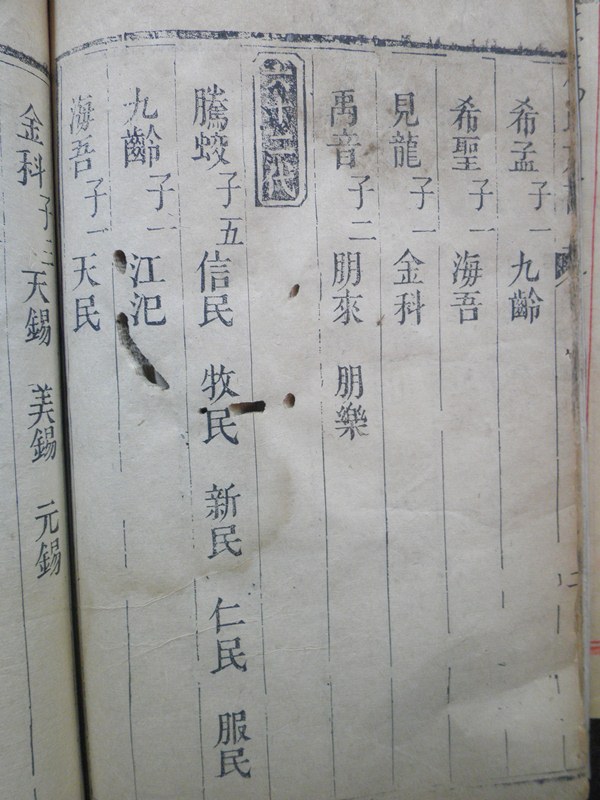 希孟 子一 九齡
希聖 子一 海吾
見龍 子一 金科
禹音 子二 朋來 朋樂
騰蛟 子五 信民 牧民 新民 仁民 服民
九齡 子一 江汜
海吾 子一 天民
金科 子三 天錫 美錫 元錫